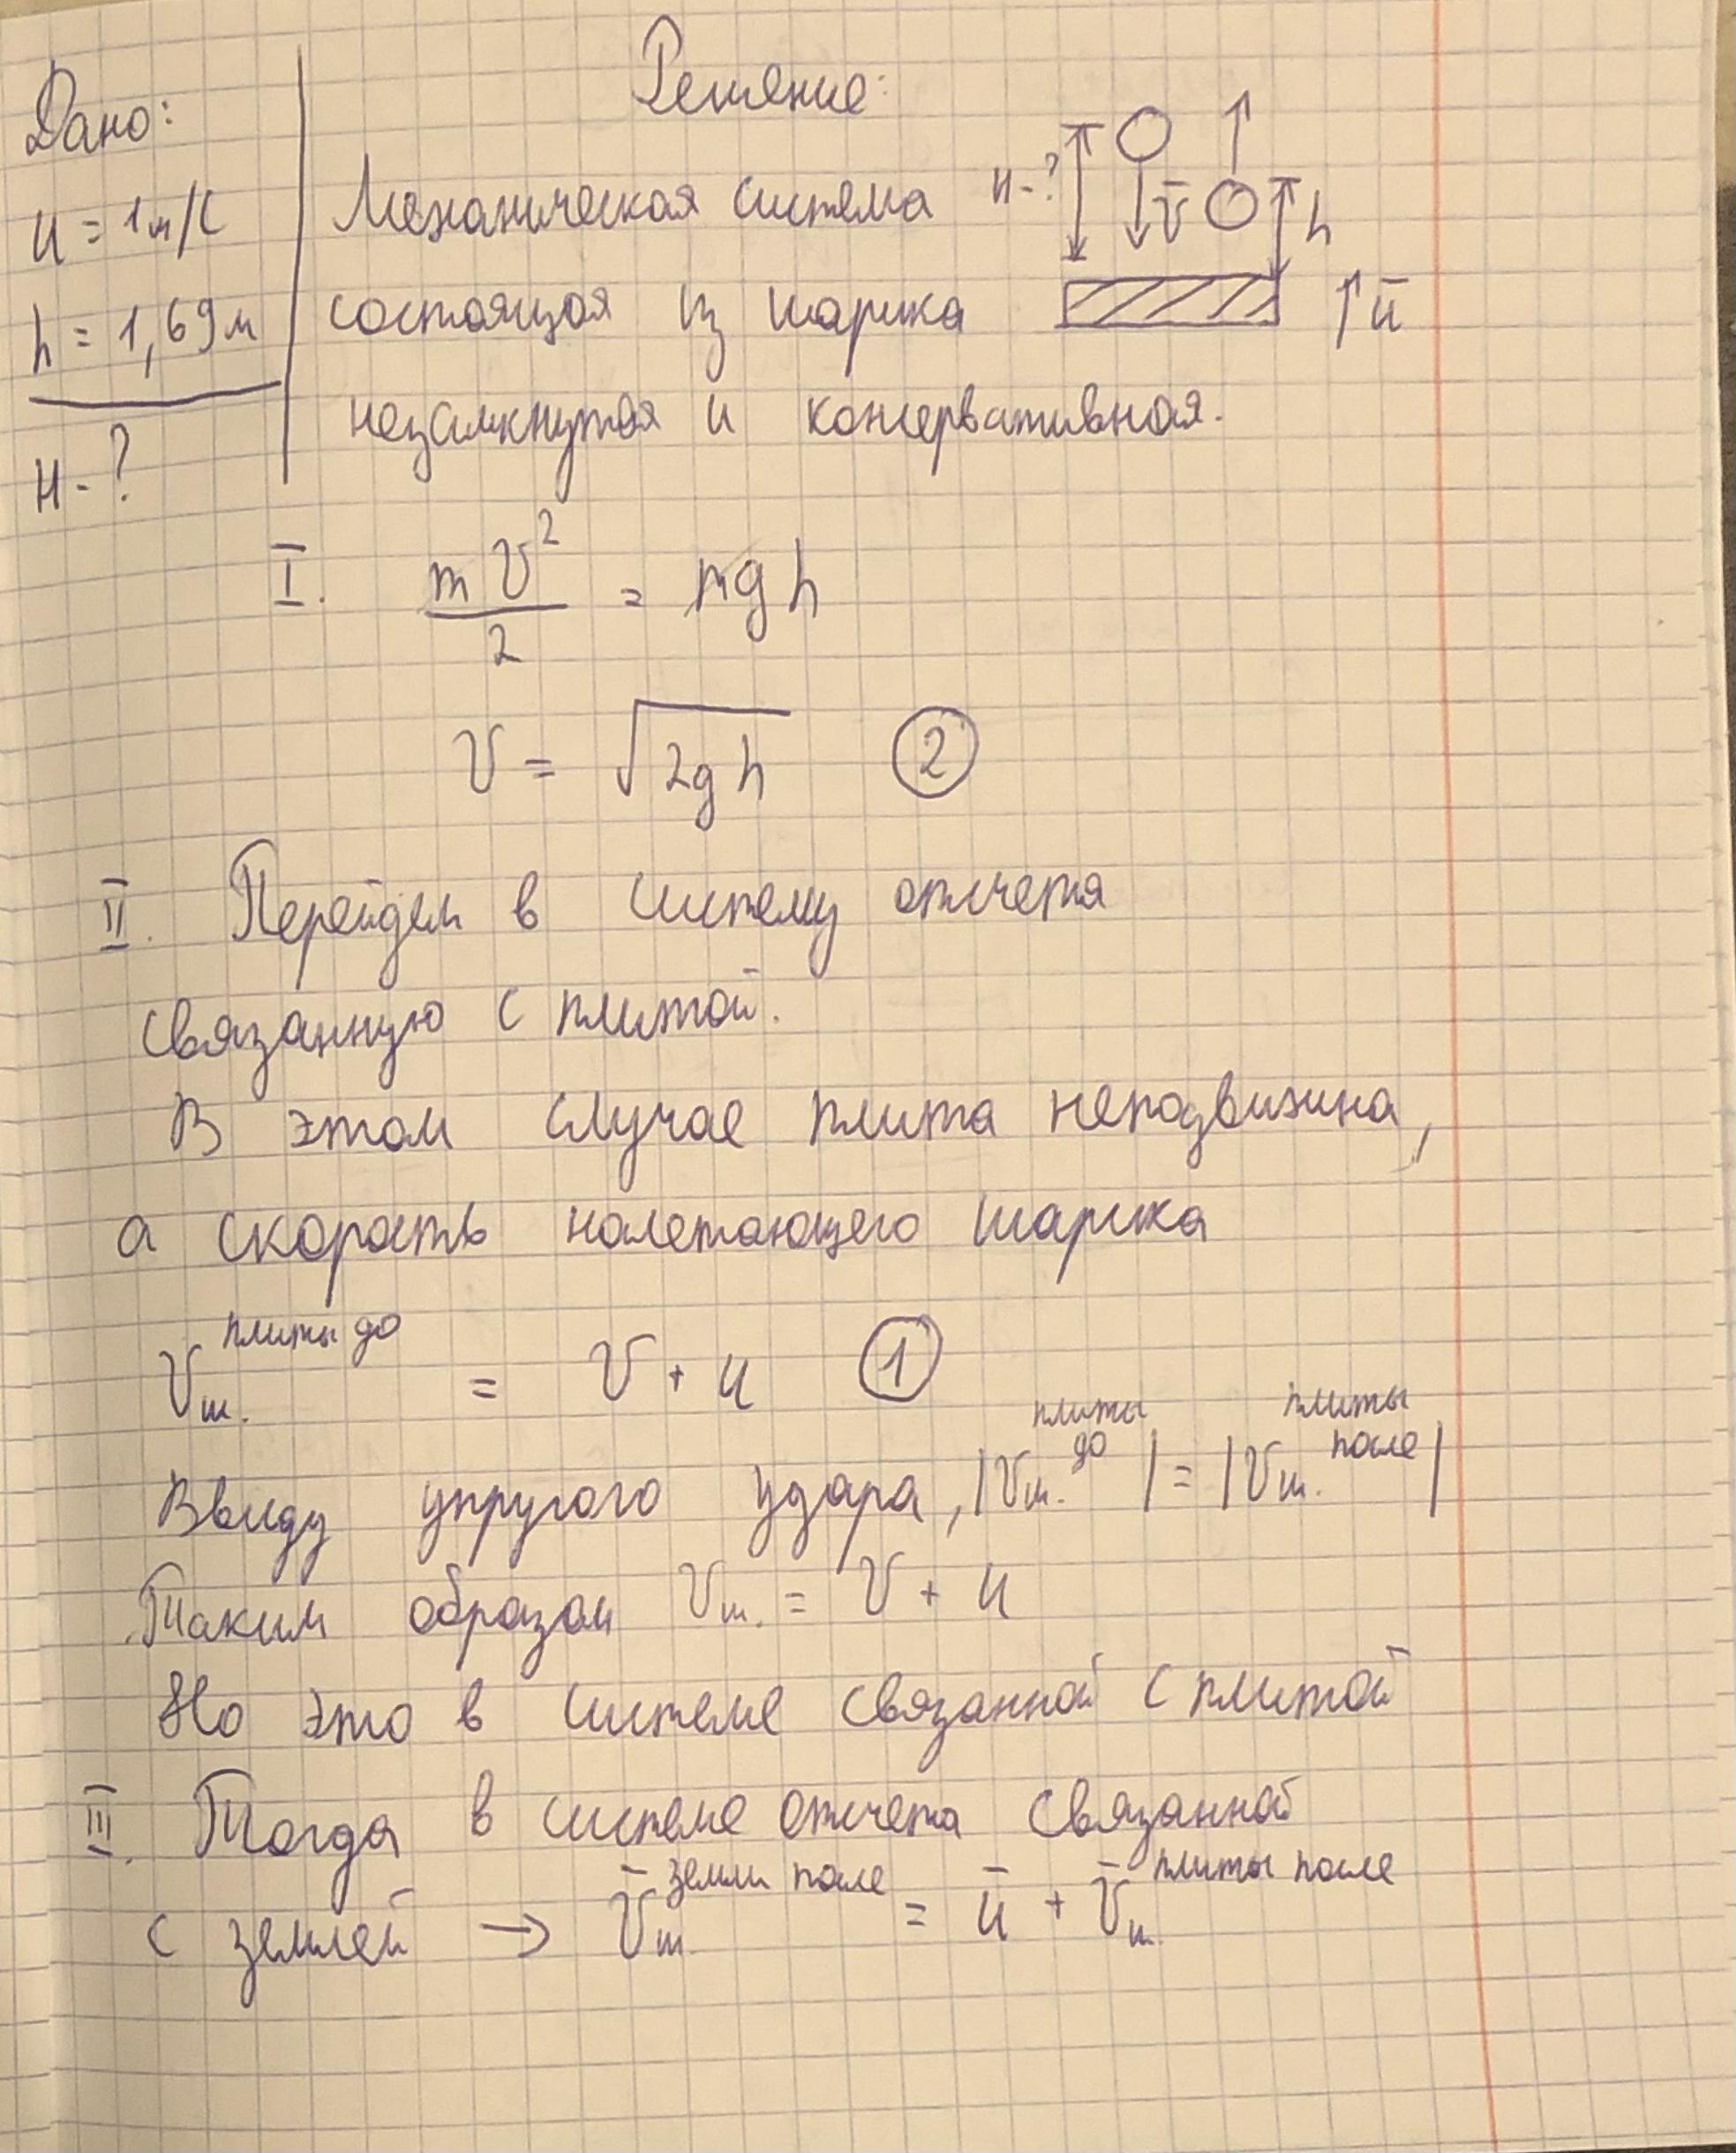 Решение:
Дано:
u = 1м/с
h = 1,69м
H - ?
H - ?
v̄
h
ū
Механическая система
состоящая из шарика
незамкнутая и консервативная.
I. mV²/2 = mgh
V = √2gh (2)
II. Перейдем в систему отсчета
связанную с плитой.
В этом случае плита неподвижна,
а скорость налетающего шарика
Vш. плиты до = V + u (1)
Ввиду упругого удара, |Vш. плиты до| = |Vш. плиты после|
Таким образом Vш. = V + u
Но это в системе связанной с плитой
III. Тогда в системе отсчета связанной
с землей → V̄ш. земли после = ū + V̄ш. плиты после